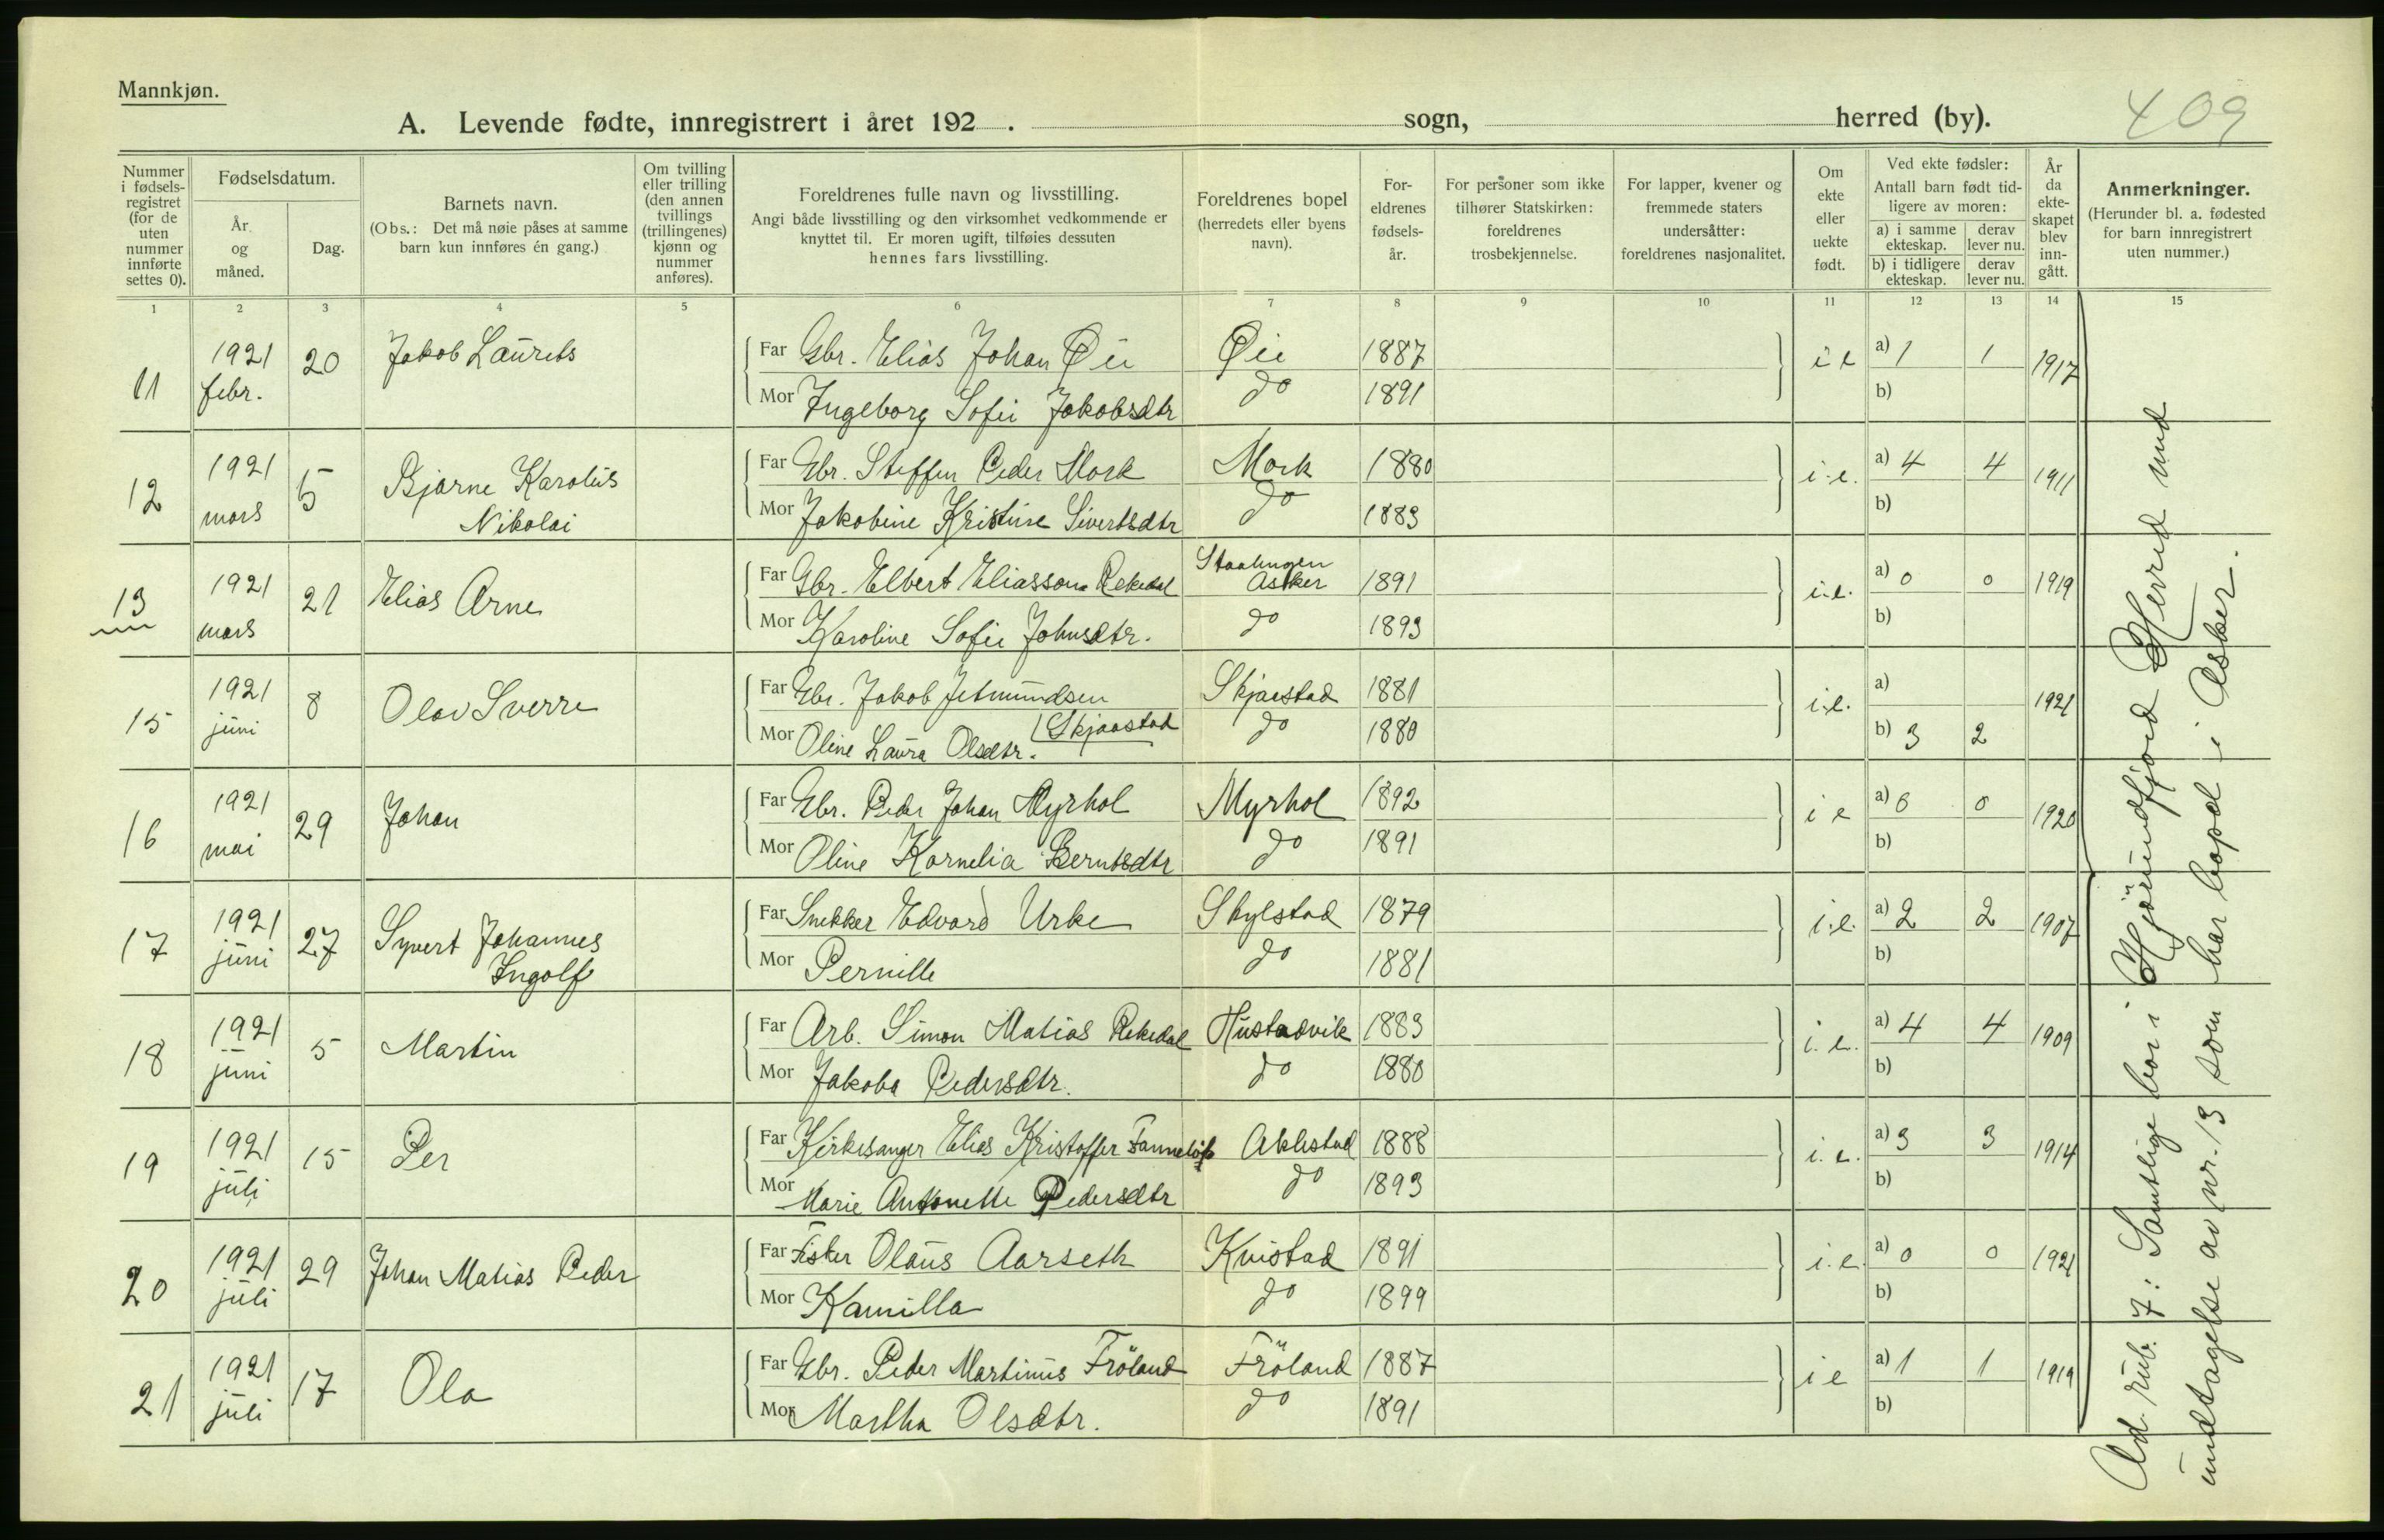 Mannkjøn.
A. Levende fødte, innregistrert i året 192 . sogn, herred (by).
409
Nummer i fødsels-registret (for de uten nummer innførte settes 0).
Fødselsdatum.
År og måned.
Dag.
Barnets navn.
(Obs.: Det må nøie påses at samme barn kun innføres én gang.)
Om tvilling eller trilling (den annen tvillings (trillingenes) kjønn og nummer anføres).
Foreldrenes fulle navn og livsstilling.
Angi både livsstilling og den virksomhet vedkommende er knyttet til. Er moren ugift, tilføies dessuten hennes fars livsstilling.
Foreldrenes bopel (herredets eller byens navn).
For-eldrenes fødsels-år.
For personer som ikke tilhører Statskirken: foreldrenes trosbekjennelse.
For lapper, kvener og fremmede staters undersåtter: foreldrenes nasjonalitet.
Om ekte eller uekte født.
Ved ekte fødsler:
Antall barn født tid-ligere av moren:
a) i samme ekteskap.
derav lever nu.
b) i tidligere ekteskap.
derav lever nu.
År da ekte-skapet blev inn-gått.
Anmerkninger.
(Herunder bl. a. fødested for barn innregistrert uten nummer.)
1 2 3 4 5 6 7 8 9 10 11 12 13 14 15
11 1921 febr. 20 Jakob Laurits
Far Gbr. Elias Johan Øie Øie 1887 i e a) 1 1 1917
Mor Ingeborg Sofie Jakobsdtr do 1891 b)
12 1921 mars 5 Bjarne Karolus Nikolai
Far Gbr. Steffen Peder Mork Mork 1880 i.e. a) 4 4 1911
Mor Jakobine Kristine Sivertsdtr do 1883 b)
13 1921 mars 21 Elias Arne
Far Gbr. Elbert Eliasson Rekedal Asker 1891 i.e. a) 0 0 1919
Mor Karoline Sofie Johnsdtr. do 1893 b)
15 1921 juni 8 Olav Sverre
Far Gbr. Jakob Jetmundsen Skjaastad Skjaastad 1881 i.e. a) 1921
Mor Oline Laura Olsdtr. do 1880 b) 3 2
16 1921 mai 29 Johan
Far Gbr. Peder Johan Myrhol Myrhol 1892 i e a) 0 0 1920
Mor Oline Kornelia Berntsdtr do 1891 b)
17 1921 juni 27 Syvert Johannes Ingolf
Far Snekker Edvard Urke Skylstad 1879 i.e. a) 2 2 1907
Mor Pernille do 1881 b)
18 1921 juni 5 Martin
Far Arb. Simon Matias Rekedal Hustadvik 1883 i. e. a) 4 4 1909
Mor Jakoba Pedersdtr. do 1880 b)
19 1921 juli 15 Per
Far Kirkesanger Elias Kristoffer Aklestad 1888 i. e. a) 3 3 1914
Mor Marie Antonette Pedersdtr do 1893 b)
20 1921 juli 29 Johan Matias Peder
Far Fisker Olaus Aarseth Kvistad 1891 i. e. a) 0 0 1921
Mor Kamilla do 1899 b)
21 1921 juli 17 Ola
Far Gbr. Peder Martinus Fröland Fröland 1887 i e a) 1 1 1919
Mor Martha Olsdtr. do 1891 b)
Ad rub. 7: Samtlige bor i Hjörundfjord Herred med
undtagelse av nr. 13 som har bopel i Asker.